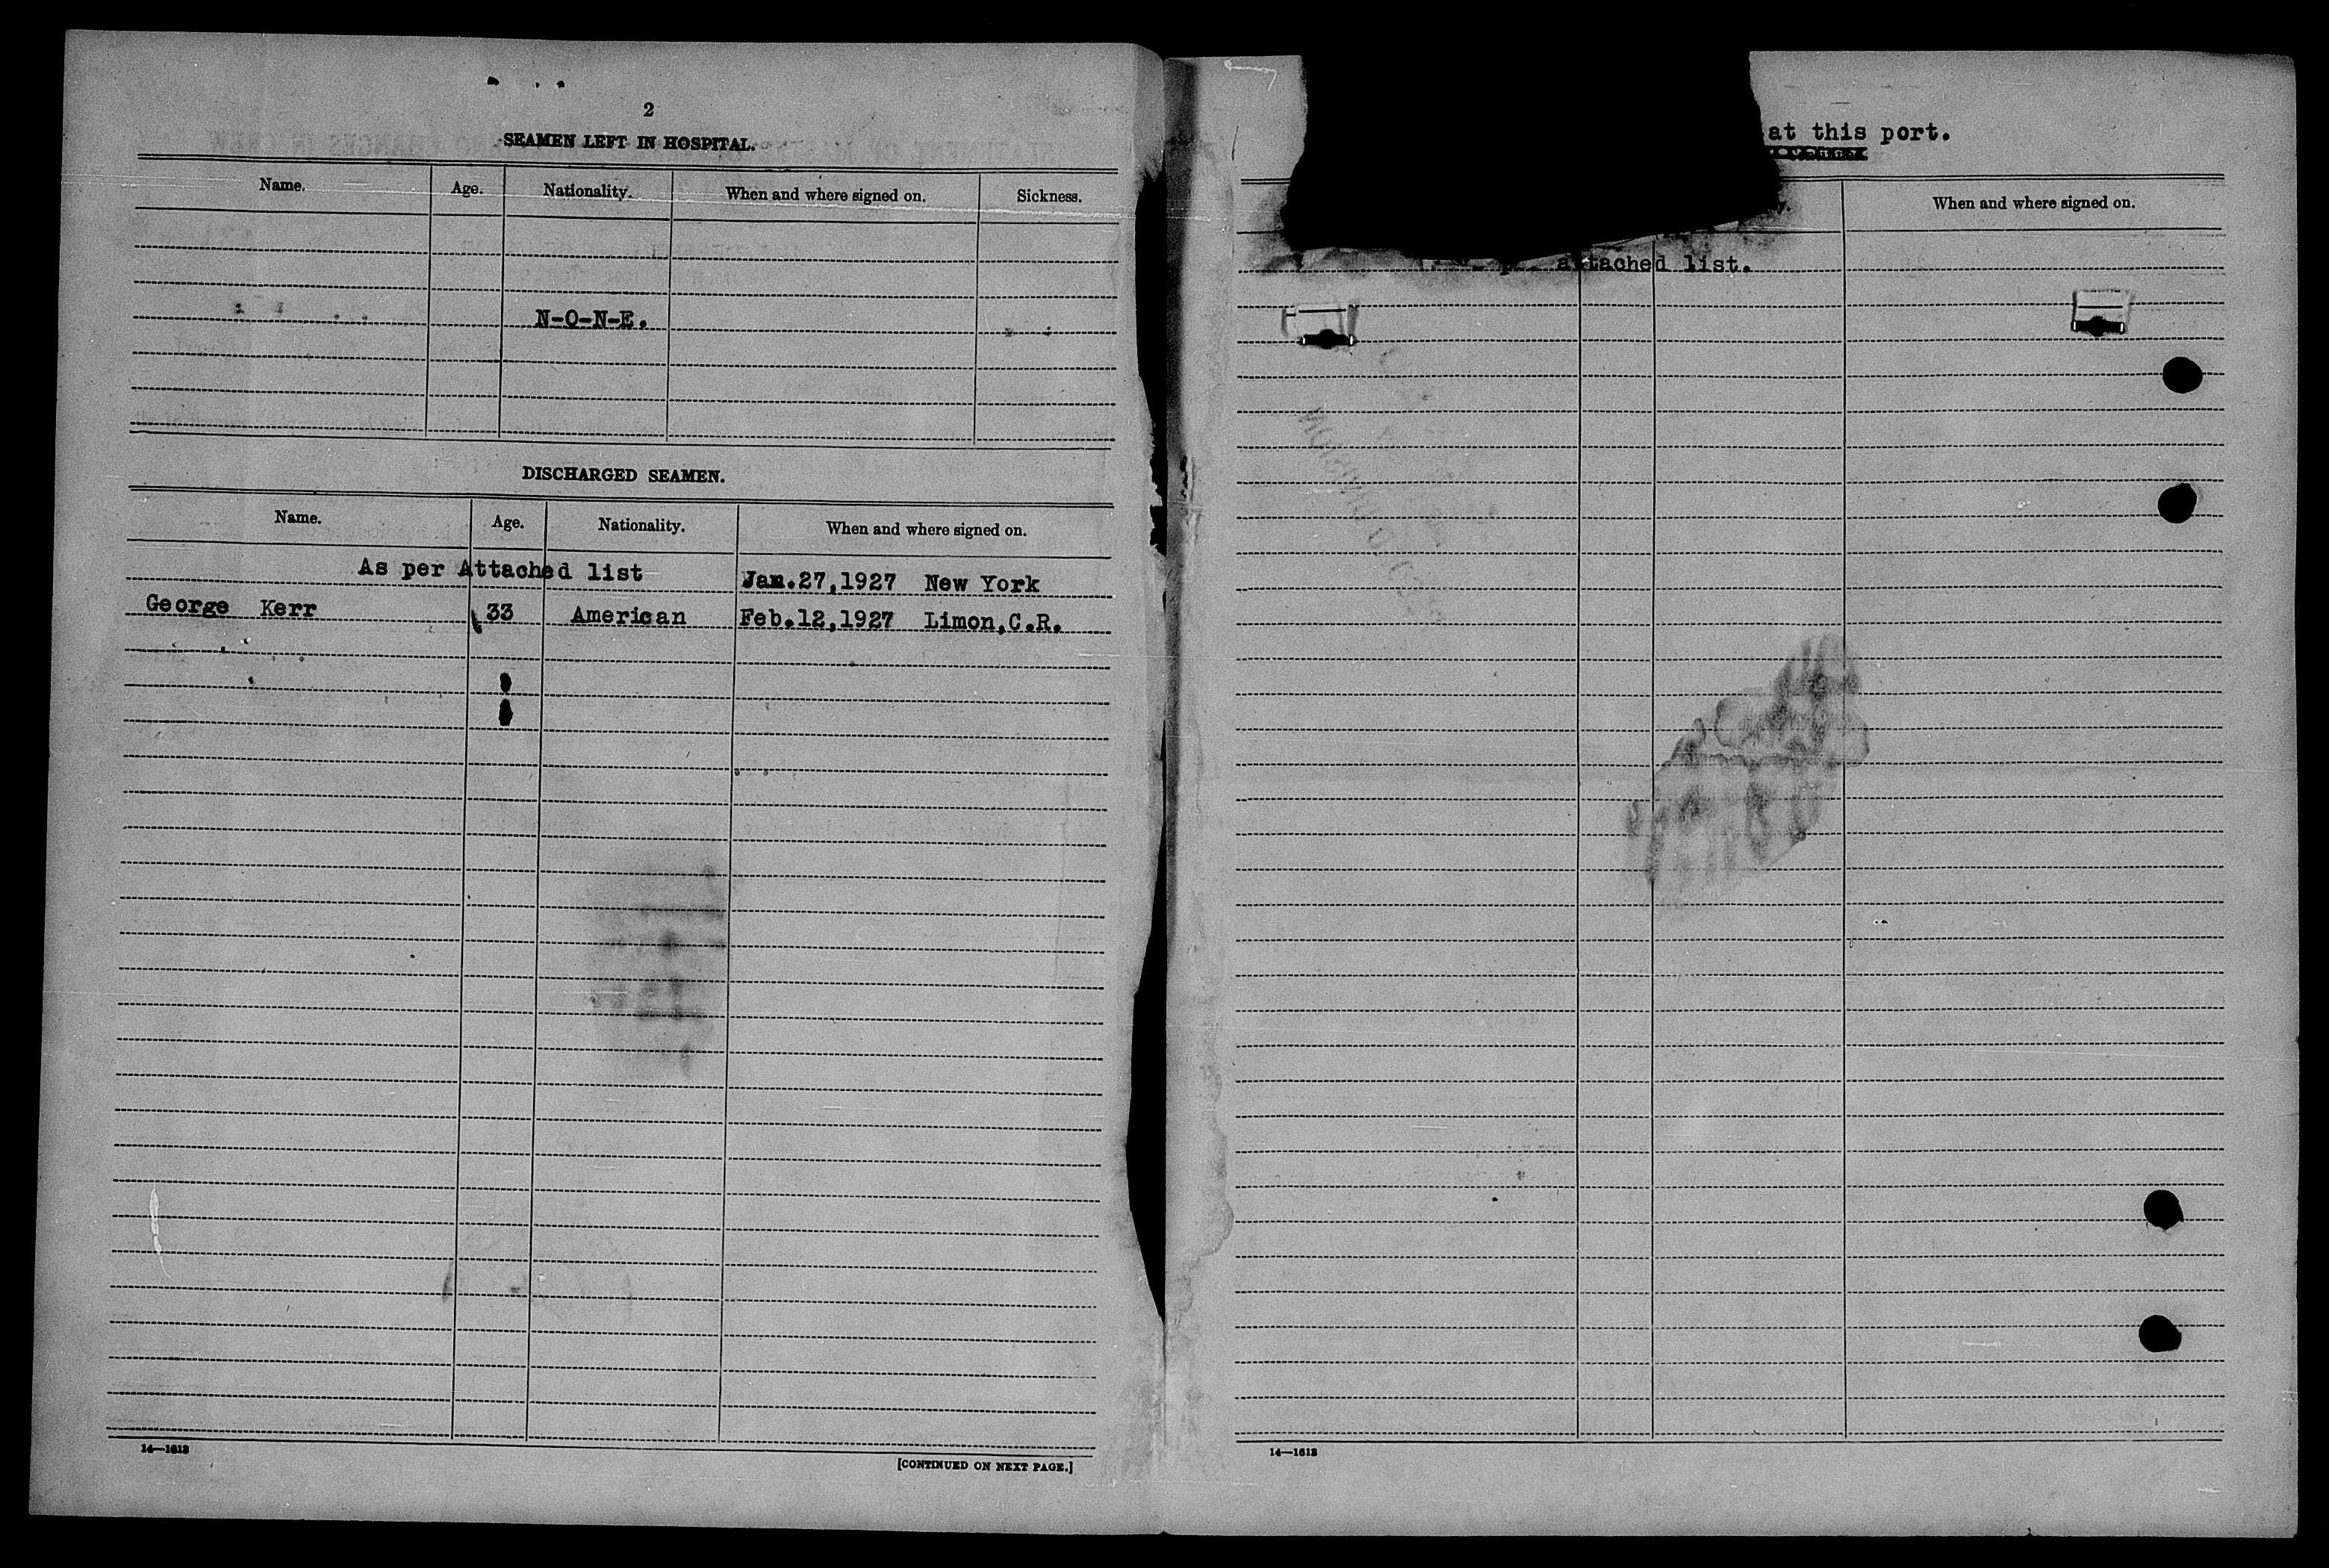 2
SEAMEN LEFT IN HOSPITAL.
Name. Age. Nationality. When and where signed on. Sickness.
N-O-N-E.
DISCHARGED SEAMEN.
Name. Age. Nationality. When and where signed on.
As per Attached list Jan.27,1927 New York
George Kerr 33 American Feb.12,1927 Limon,C.R.
14—1613
[CONTINUED ON NEXT PAGE.]
at this port.
When and where signed on.
attached list.
14—1613